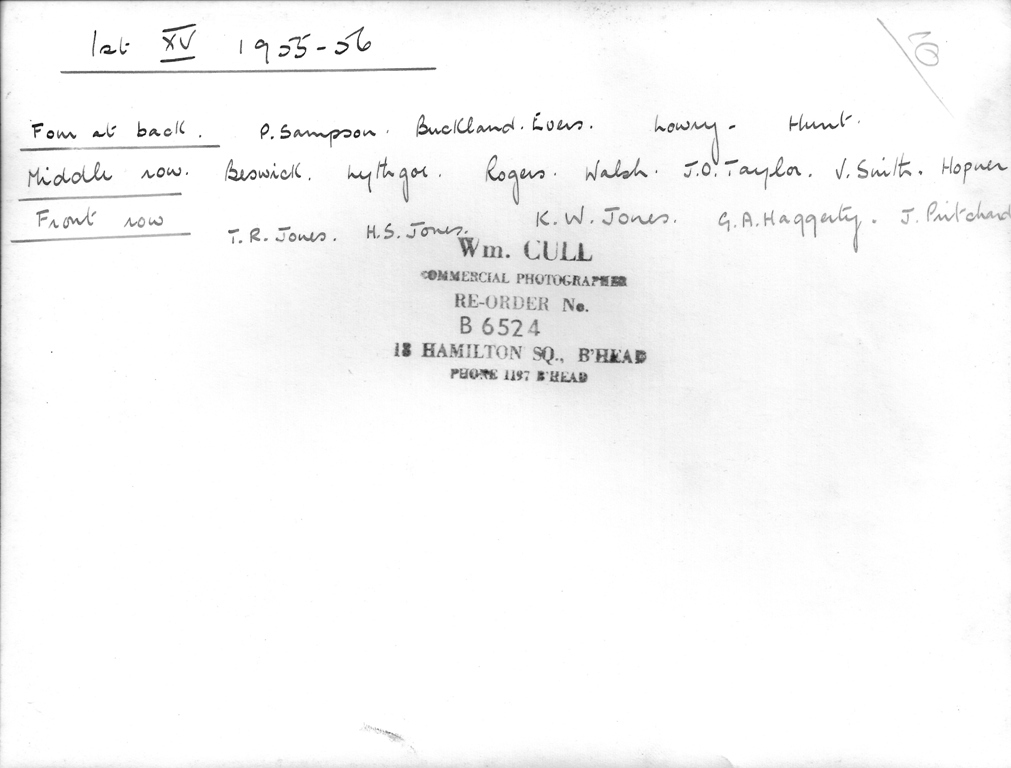 1st XV 1955-56
Four at back. P. Sampson. Buckland. Evers. Lowry. Hunt.
Middle row. Beswick. Lythgoe. Rogers. Walsh. J.O. Taylor. V. Smith. Hopner
Front row T.R. Jones. H.S. Jones. K.W. Jones. G.A. Haggerty. J. Pritchard
Wm. CULL
COMMERCIAL PHOTOGRAPHER
RE-ORDER No.
B 6524
18 HAMILTON SQ., B'HEAD
PHONE 1197 B'HEAD